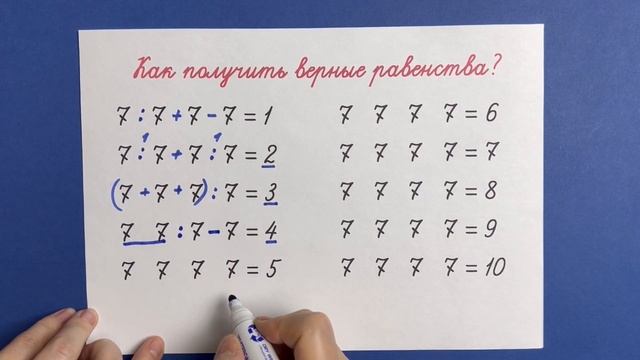 Как получить верные равенства?
7 : 7 + 7 - 7 = 1
1 1
7 : 7 + 7 : 7 = 2
(7 + 7 + 7) : 7 = 3
7 7 : 7 - 7 = 4
7 7 7 7 = 5
7 7 7 7 = 6
7 7 7 7 = 7
7 7 7 7 = 8
7 7 7 7 = 9
7 7 7 7 = 10